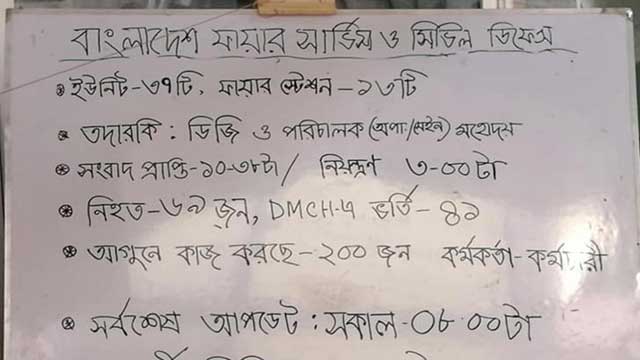 বাংলাদেশ ফায়ার সার্ভিস ও সিভিল ডিফেন্স
ইউনিট-৩৭টি, ফায়ার স্টেশন-১৩টি
তদারকি : ডিজি ও পরিচালক (অপা:/মেইন) মহোদয়
সংবাদ প্রাপ্তি-১০-৩৮টা / নিয়ন্ত্রণ ৩-০০টা
নিহত-৬৯ জন, DMCH-এ ভর্তি-৪১
আগুনে কাজ করছে-২০০ জন কর্মকর্তা-কর্মচারী
সর্বশেষ আপডেট : সকাল-০৮.০০টা